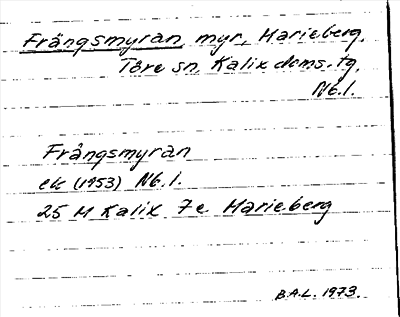 Frängsmyran, myr, Marieberg,
Töre sn, Kalix doms. tg,
Nb. l.
Frångsmyrän
ek (1953) Nb. l.
25 M Kalix 7e Marieberg
B.A.L. 1973.